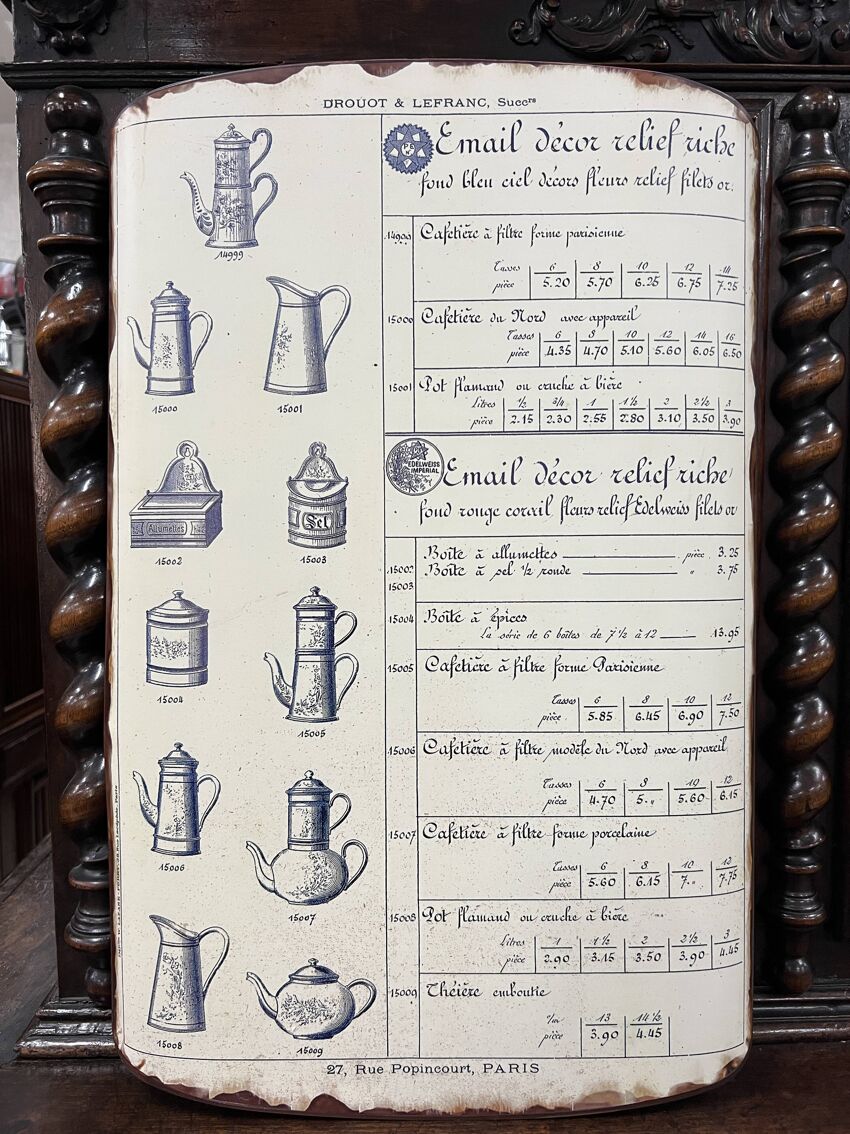 DROUOT & LEFRANC, Succrs
14999
15000
15001
Allumettes
Sel
15002
15003
15004
15005
15006
15007
15008
15009
P G
Email décor relief riche
fond bleu ciel décors fleurs relief filets or.
14999 Cafetière à filtre forme parisienne
Tasses 6 8 10 12 14
pièce 5.20 5.70 6.25 6.75 7.25
15000 Cafetière du Nord avec appareil
Tasses 6 8 10 12 14 16
pièce 4.35 4.70 5.10 5.60 6.05 6.50
15001 Pot flamand ou cruche à bière
Litres 1/2 3/4 1 1 1/2 2 2 1/2 3
pièce 2.15 2.30 2.55 2.80 3.10 3.50 3.90
EDELWEISS
IMPERIAL
Email décor relief riche
fond rouge corail fleurs relief Edelweiss filets or
15002 Boîte à allumettes pièce 3.25
15003 Boîte à sel 1/2 ronde " 3.75
15004 Boîte à épices
La série de 6 boîtes de 7 1/2 à 12 13.95
15005 Cafetière à filtre forme Parisienne
Tasses 6 8 10 12
pièce 5.85 6.45 6.90 7.50
15006 Cafetière à filtre modèle du Nord avec appareil
Tasses 6 8 10 12
pièce 4.70 5." 5.60 6.15
15007 Cafetière à filtre forme porcelaine
Tasses 6 8 10 12
pièce 5.60 6.15 7." 7.75
15008 Pot flamand ou cruche à bière
Litres 1 1 1/2 2 2 1/2 3
pièce 2.90 3.15 3.50 3.90 4.45
15009 Théière emboutie
c/m 13 14 1/2
pièce 3.90 4.45
27, Rue Popincourt, PARIS